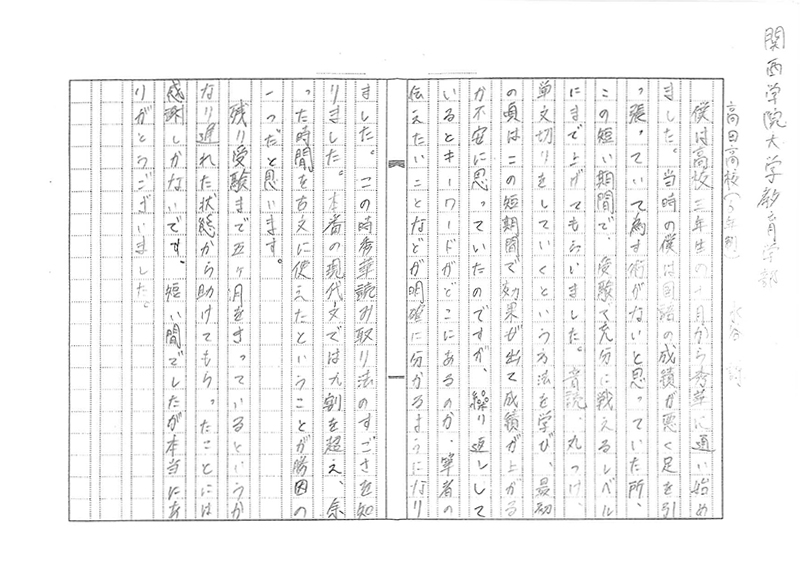 関西学院大学教育学部
高田高校(3年制)
僕は高校三年生の十月から秀華に通い始め
ました。当時の僕は国語の成績が悪く足を引
っ張っていて為す術がないと思っていた所、
この短い期間で、受験で充分に戦えるレベル
にまで上げてもらいました。音読、丸つけ、
単文切りをしていくという方法を学び、最初
の頃はこの短期間で効果も出て成績が上がる
か不安に思っていたのですが、繰り返しして
いるとキーワードがどこにあるのか、筆者の
伝えたいことなどが明確に分かるようになり
ました。この時秀華読み取り法のすごさを知
りました。本番の現代文では九割を超え、余
った時間を古文に使えたということが勝因の
一つだと思います。
残り受験まで五ヶ月をきっているというか
なり遅れた状態から助けてもらったことには
感謝しかないです。短い間でしたが本当にあ
りがとうございました。